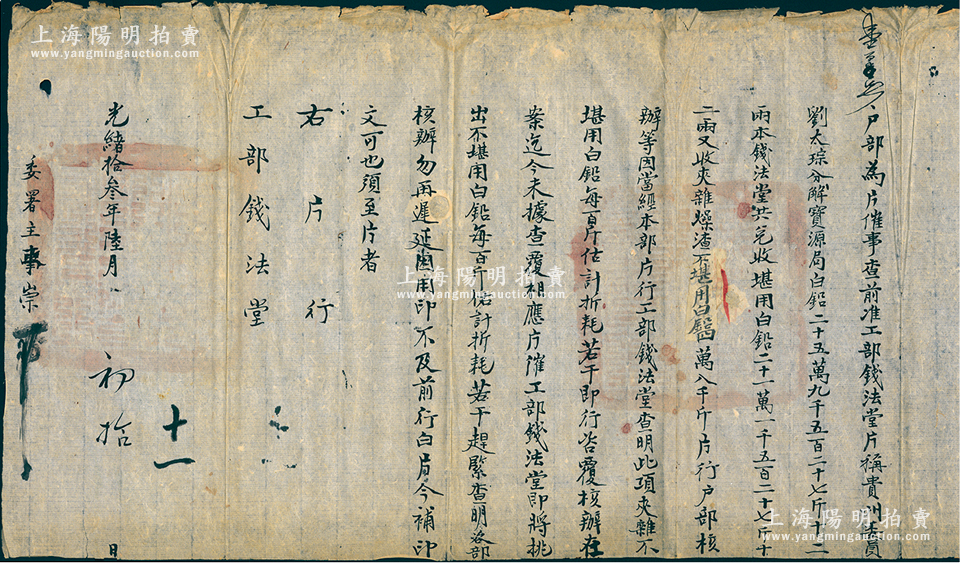 户部為片催事查前准工部錢法堂片稱貴州委員
劉太琮分解寶源局白鉛二十五萬九千五百二十七斤十二
兩本錢法堂共兌收堪用白鉛二十一萬一千五百二十七斤十
二兩又收夾雜燥渣不堪用白鉛四萬八千斤片行户部核
辦等因當經本部片行工部錢法堂查明此項夾雜不
堪用白鉛每百斤估計折耗若干即行咨覆核辦在
案迄今未據查覆相應片催工部錢法堂即將挑
出不堪用白鉛每百斤估計折耗若干趕緊查明咨部
核辦勿再遲延因用印不及前行白片今補印
文可也須至片者
右片行
工部錢法堂
十一
光緒拾叁年陸月初拾日
委署主事崇
上海陽明拍賣
www.yangmingauction.com
上海陽明拍賣
www.yangmingauction.com
上海陽明拍賣
www.yangmingauction.com